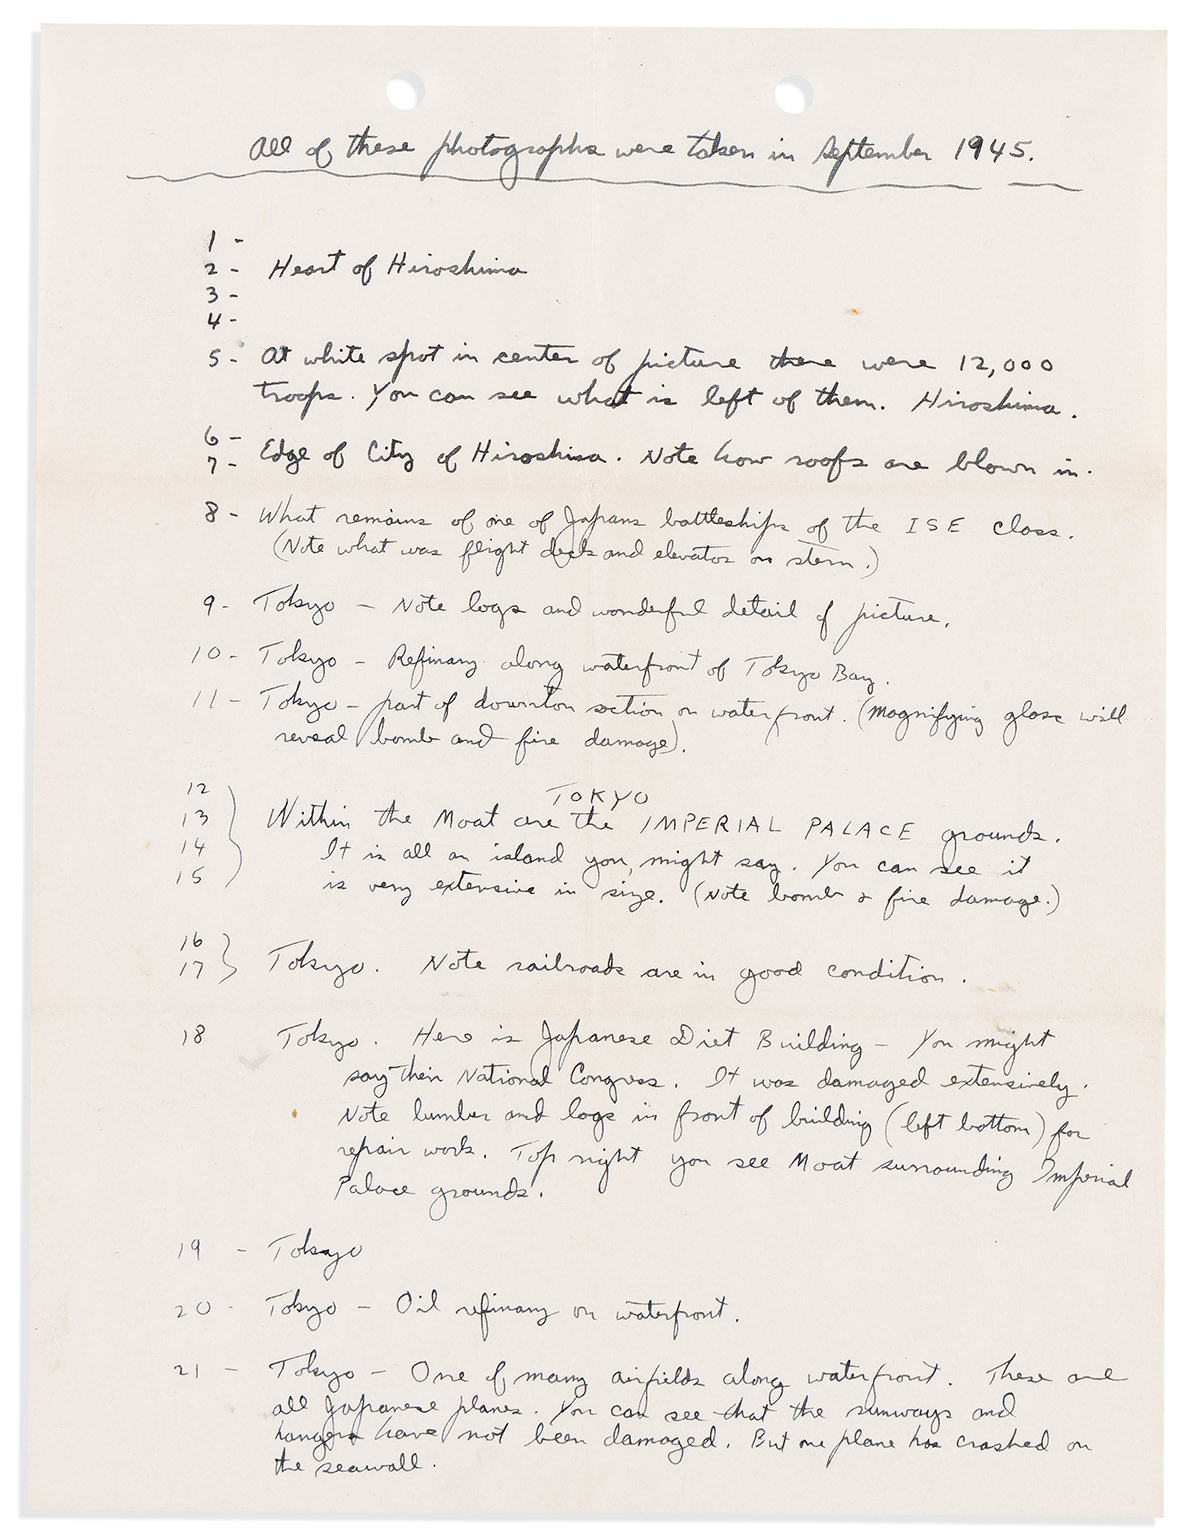 All of these photographs were taken in September 1945.
1 -
2 - Heart of Hiroshima
3 -
4 -
5 - At white spot in center of picture there were 12,000
troops. You can see what is left of them. Hiroshima.
6 -
7 - Edge of City of Hiroshima. Note how roofs are blown in.
8 - What remains of one of Japans battleships of the ISE class.
(Note what was flight deck and elevator on stern.)
9 - Tokyo - Note logs and wonderful detail of picture.
10 - Tokyo - Refinary along waterfront of Tokyo Bay.
11 - Tokyo - part of downtown section on waterfront. (Magnifying glass will
reveal bomb and fire damage).
12
TOKYO
13 Within the Moat are the IMPERIAL PALACE grounds.
14 It is all an island you might say. You can see it
15 is very extensive in size. (Note bomb & fire damage.)
16
17 Tokyo. Note railroads are in good condition.
18 Tokyo. Here is Japanese Diet Building - You might
say their National Congress. It was damaged extensively.
Note lumber and logs in front of building (left bottom) for
repair work. Top right you see Moat surrounding Imperial
Palace grounds.
19 - Tokyo
20 - Tokyo - Oil refinary on waterfront.
21 - Tokyo - One of many airfields along waterfront. These are
all Japanese planes. You can see that the runways and
hangers have not been damaged. But one plane has crashed on
the seawall.